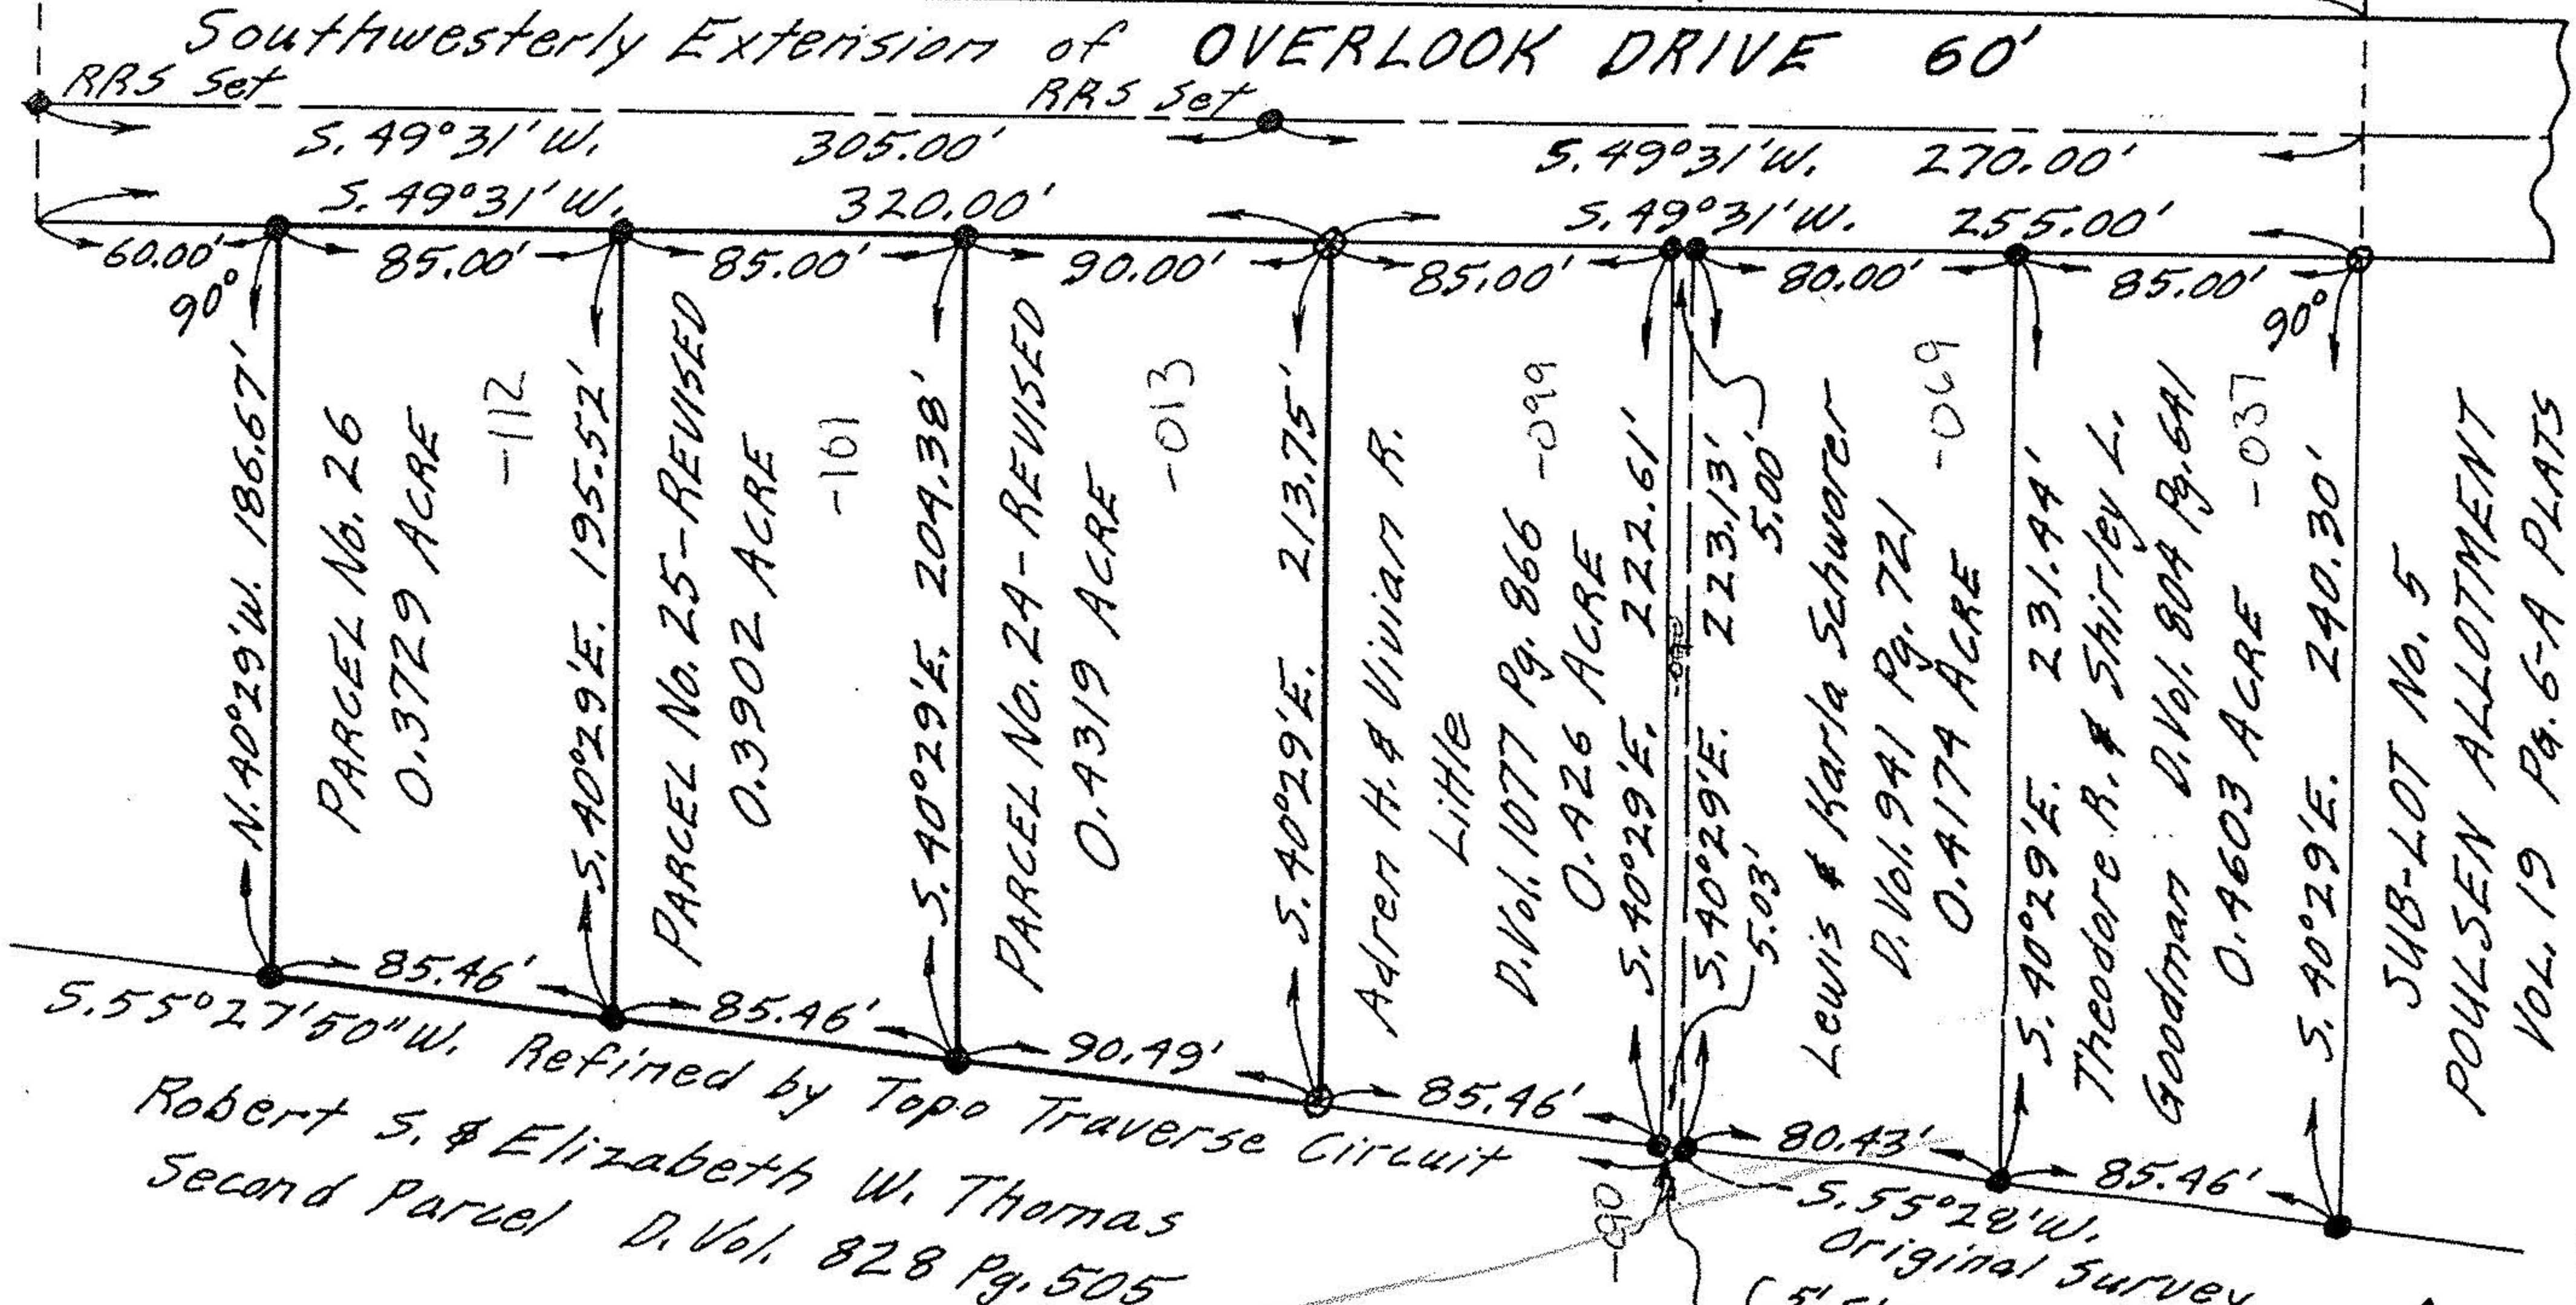 Southwesterly Extension of OVERLOOK DRIVE 60'
RRS Set
RRS Set
S. 49°31' W. 305.00'
S. 49°31' W. 270.00'
S. 49°31' W. 320.00'
S. 49°31' W. 255.00'
60.00'
85.00'
85.00'
90.00'
85.00'
80.00'
85.00'
90°
90°
N. 40°29' W. 186.67'
PARCEL No. 26
0.3729 ACRE
-112
S. 40°29' E. 195.52'
PARCEL No. 25-REVISED
0.3902 ACRE
-101
S. 40°29' E. 204.38'
PARCEL No. 24-REVISED
0.4319 ACRE
-013
S. 40°29' E. 213.75'
Adren H. & Vivian R.
Little
D. Vol. 1077 Pg. 866
0.426 ACRE
-099
S. 40°29' E. 222.61'
S. 40°29' E. 223.13'
5.00'
5.03'
Lewis & Karla Schworer
D. Vol. 941 Pg. 721
0.4174 ACRE
-069
S. 40°29' E. 231.44'
Theodore R. & Shirley L.
Goodman D. Vol. 804 Pg. 641
0.4603 ACRE
-037
S. 40°29' E. 240.30'
SUB-LOT No. 5
POULSEN ALLOTMENT
VOL. 19 PG. 6-A PLATS
85.46'
85.46'
90.49'
85.46'
80.43'
85.46'
S. 55°27'50" W. Refined by Topo Traverse Circuit
Robert S. & Elizabeth W. Thomas
Second Parcel D. Vol. 828 Pg. 505
-90
S. 55°28' W.
Original Survey